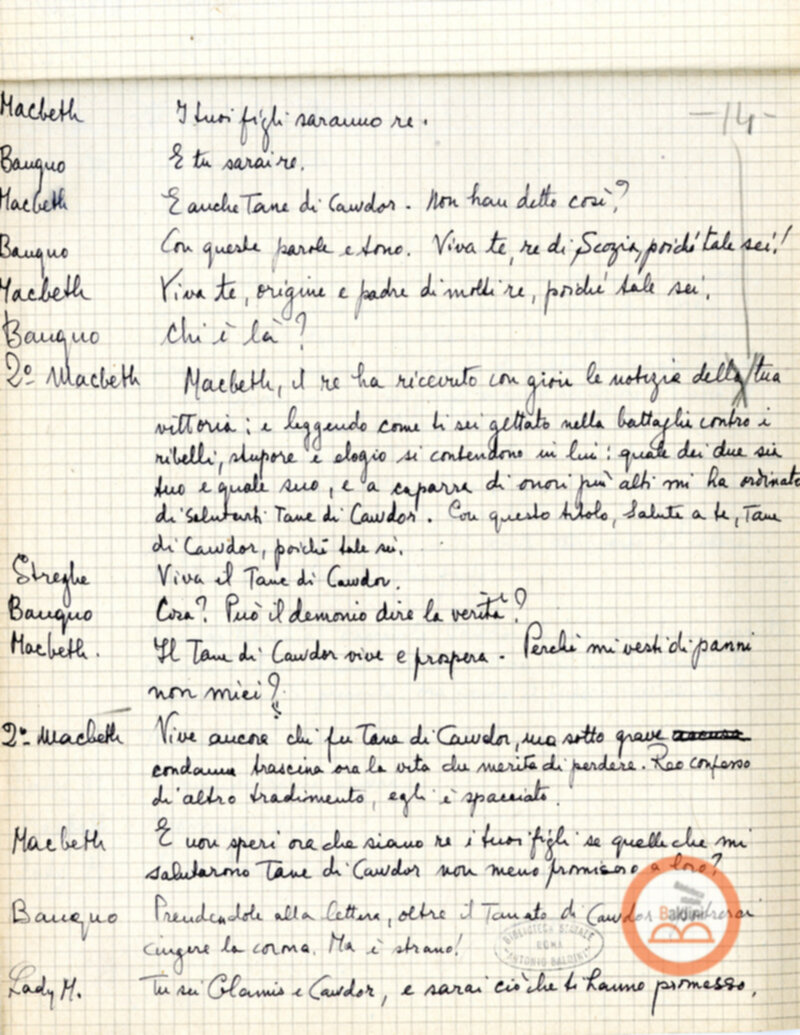 -14-
Macbeth I tuoi figli saranno re.
Banquo E tu sarai re.
Macbeth E anche Tane di Cawdor. Non han detto così?
Banquo Con queste parole e tono. Viva te, re di Scozia, poiché tale sei!
Macbeth Viva te, origine e padre di molti re, poiché tale sei.
Banquo Chi è là?
2º Macbeth Macbeth, il re ha ricevuto con gioia la notizia della tua
vittoria: e leggendo come ti sei gettato nella battaglia contro i
ribelli, stupore e elogio si contendono in lui: quale dei due sia
tuo e quale suo, e a caparra di onori più alti mi ha ordinato
di salutarti Tane di Cawdor. Con questo titolo, Salute a te, Tane
di Cawdor, poiché tale sei.
Streghe Viva il Tane di Cawdor.
Banquo Cosa? Può il demonio dire la verità?
Macbeth. Il Tane di Cawdor vive e prospera. Perché mi vesti di panni
non miei?
2º Macbeth Vive ancora chi fu Tane di Cawdor, ma sotto grave accusa
condanna trascina ora la vita che merita di perdere. Reo confesso
di altro tradimento, egli è spacciato.
Macbeth E non speri ora che siano re i tuoi figli se quelle che mi
salutarono Tane di Cawdor non meno promisero a loro?
Banquo Prendendole alla lettera, oltre il Tanato di Cawdor
cingere la corona. Ma è strano!
Lady M. Tu sei Glamis e Cawdor, e sarai ciò che ti hanno promesso.
BIBLIOTECA STATALE
ROMA
ANTONIO BALDINI
Biblioteca
Baldini